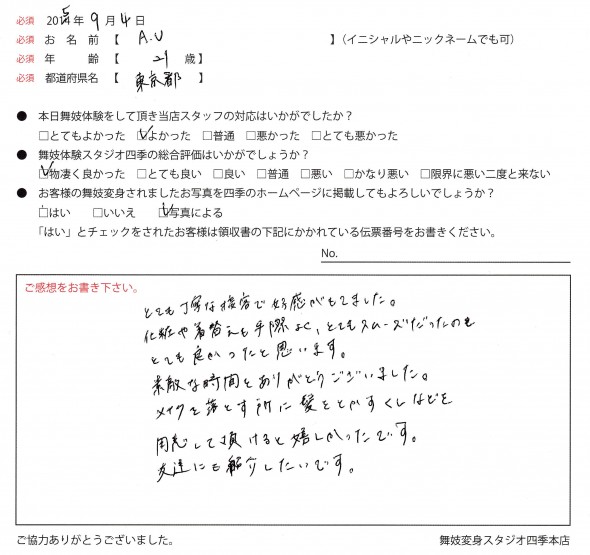 必須 2015年 9月 4日
必須 お名前【 A.U 】(イニシャルやニックネームでも可)
必須 年齢【 21 歳】
必須 都道府県名【 東京都 】
● 本日舞妓体験をして頂き当店スタッフの対応はいかがでしたか?
□とてもよかった ☑よかった □普通 □悪かった □とても悪かった
● 舞妓体験スタジオ四季の総合評価はいかがでしょうか?
☑物凄く良かった □とても良い □良い □普通 □悪い □かなり悪い □限界に悪い二度と来ない
● お客様の舞妓変身されましたお写真を四季のホームページに掲載してもよろしいでしょうか?
□はい □いいえ ☑写真による
「はい」とチェックをされたお客様は領収書の下記にかかれている伝票番号をお書きください。
No.
ご感想をお書き下さい。
とても丁寧な接客で好感がもてました。
化粧や着替えも手際よく、とてもスムーズだったのも
とても良かったと思います。
素敵な時間をありがとうございました。
メイクを落とす所に髪をとかすくしなどを
用意して頂けると嬉しかったです。
友達にも紹介したいです。
ご協力ありがとうございました。
舞妓変身スタジオ四季本店